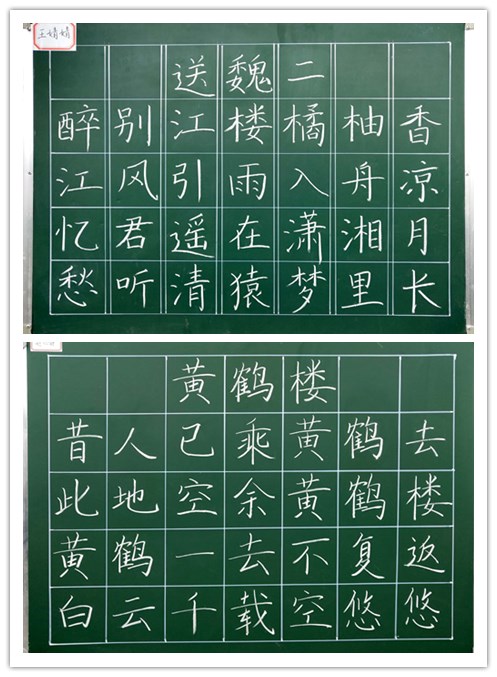 王婧婧
送魏二
醉别江楼橘柚香
江风引雨入舟凉
忆君遥在潇湘月
愁听清猿梦里长
黄鹤楼
昔人已乘黄鹤去
此地空余黄鹤楼
黄鹤一去不复返
白云千载空悠悠